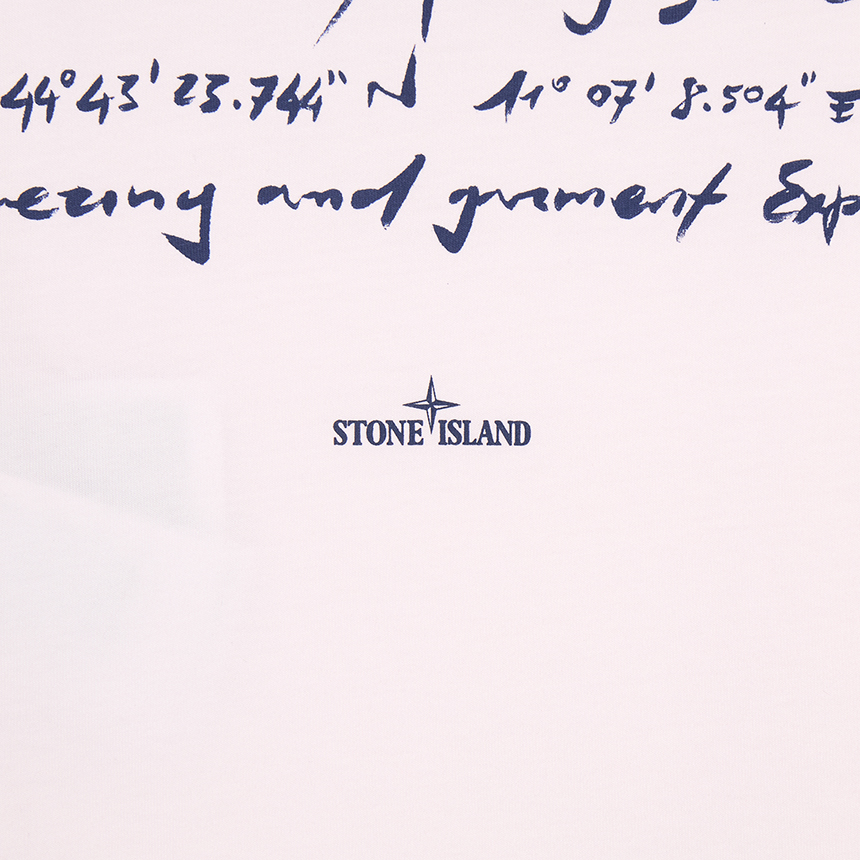 44°43'23.744" N 11°07'8.504" E
eering and garment Exp
STONE ISLAND